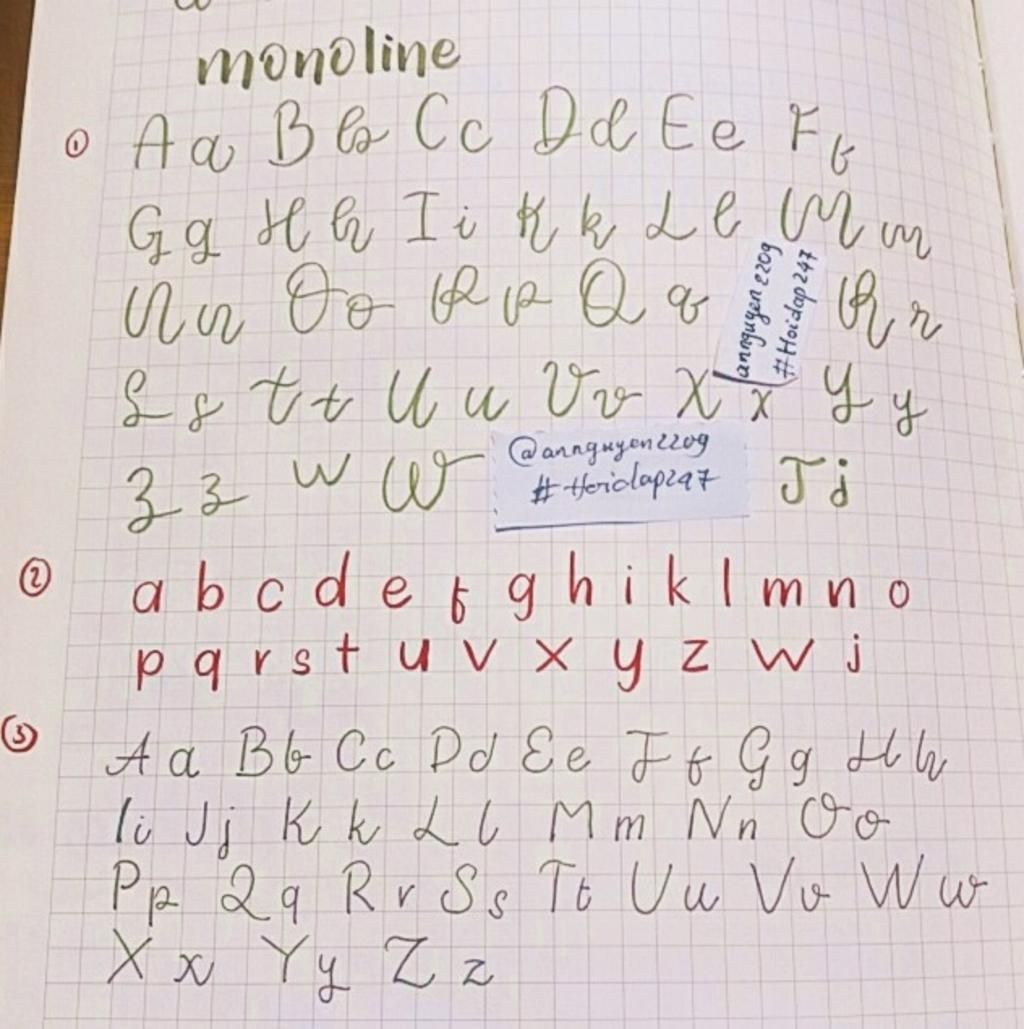 monoline
① Aa Bb Cc Dd Ee Ff
Gg Hh Ii Kk Ll Mm
Nn Oo Pp Qq Rr
annguyen2209
#Hoidap247
Ss Tt Uu Vv Xx Yy
Zz w W Jj
@annguyen2209
#Hoidap247
② a b c d e f g h i k l m n o
p q r s t u v x y z w j
③ Aa Bb Cc Dd Ee Ff Gg Hh
Ii Jj Kk Ll Mm Nn Oo
Pp Qq Rr Ss Tt Uu Vv Ww
Xx Yy Zz